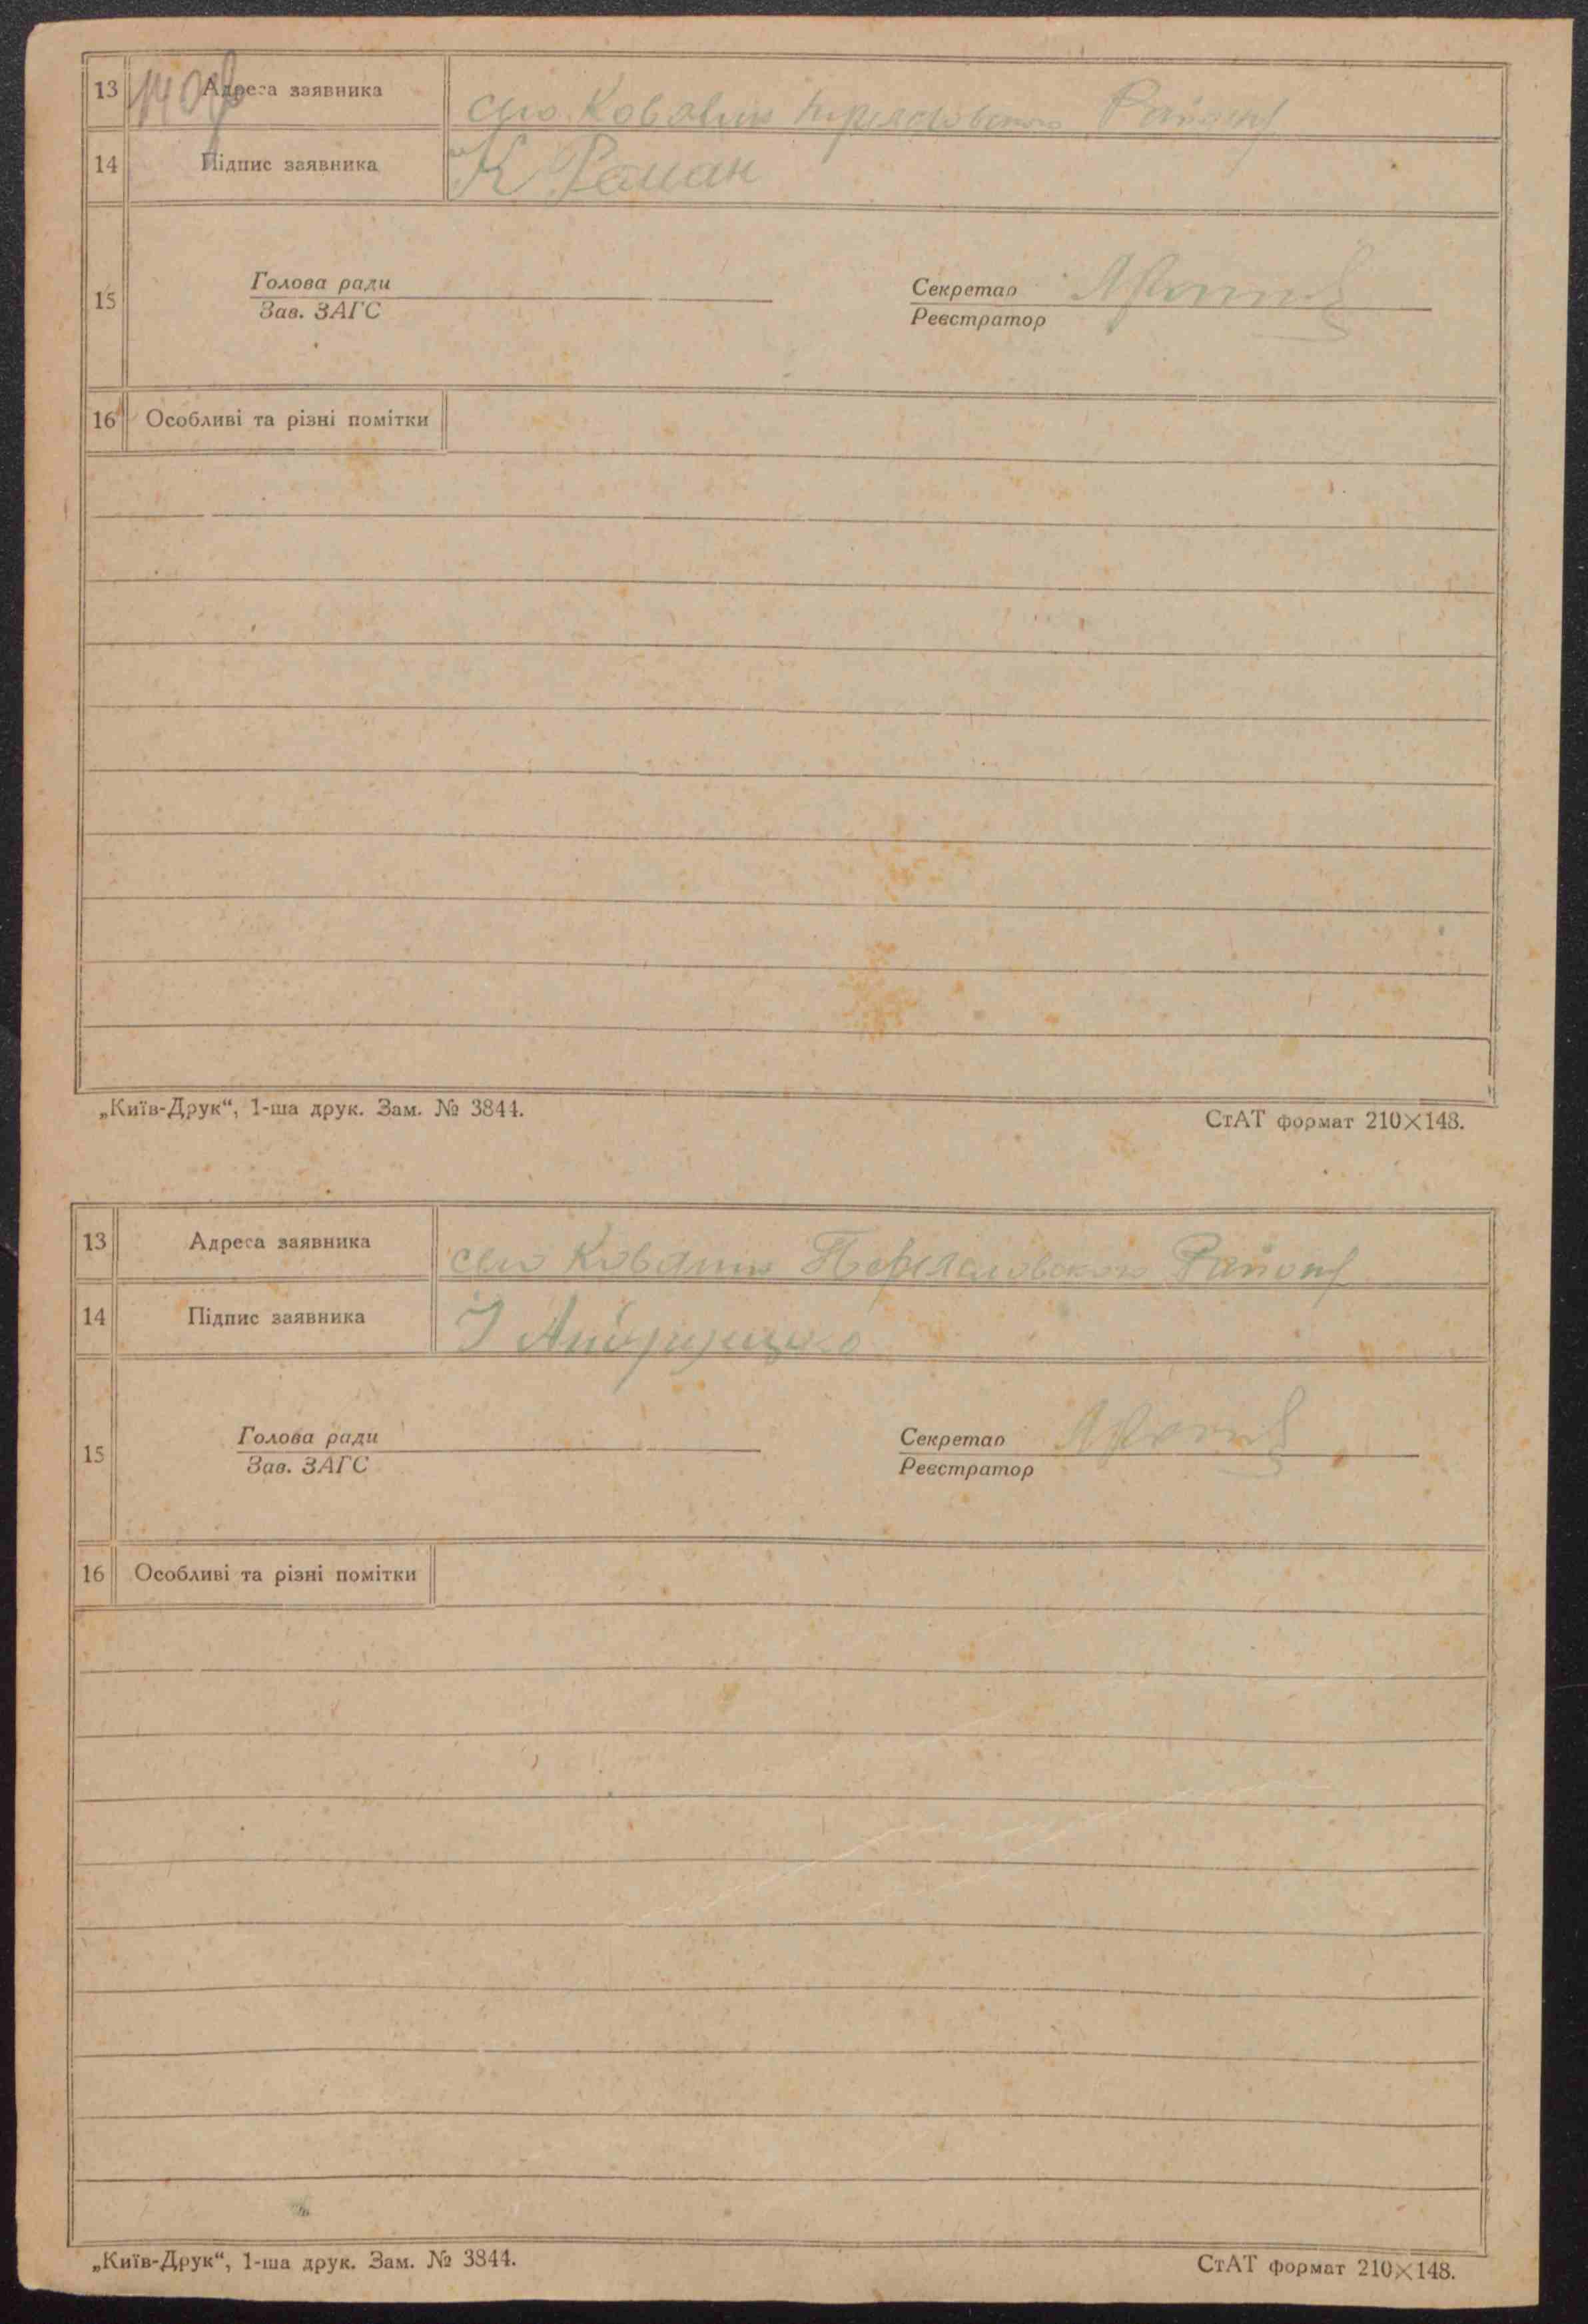 13 Адреса заявника село Ковалин Района
14 Підпис заявника К Роман
15 Голова ради Секретар
Зав. ЗАГС Реєстратор
16 Особливі та різні помітки
„Київ-Друк“, 1-ша друк. Зам. № 3844. СтАТ формат 210×148.
13 Адреса заявника село Ковалин Переяславського Района
14 Підпис заявника
15 Голова ради Секретар
Зав. ЗАГС Реєстратор
16 Особливі та різні помітки
„Київ-Друк“, 1-ша друк. Зам. № 3844. СтАТ формат 210×148.